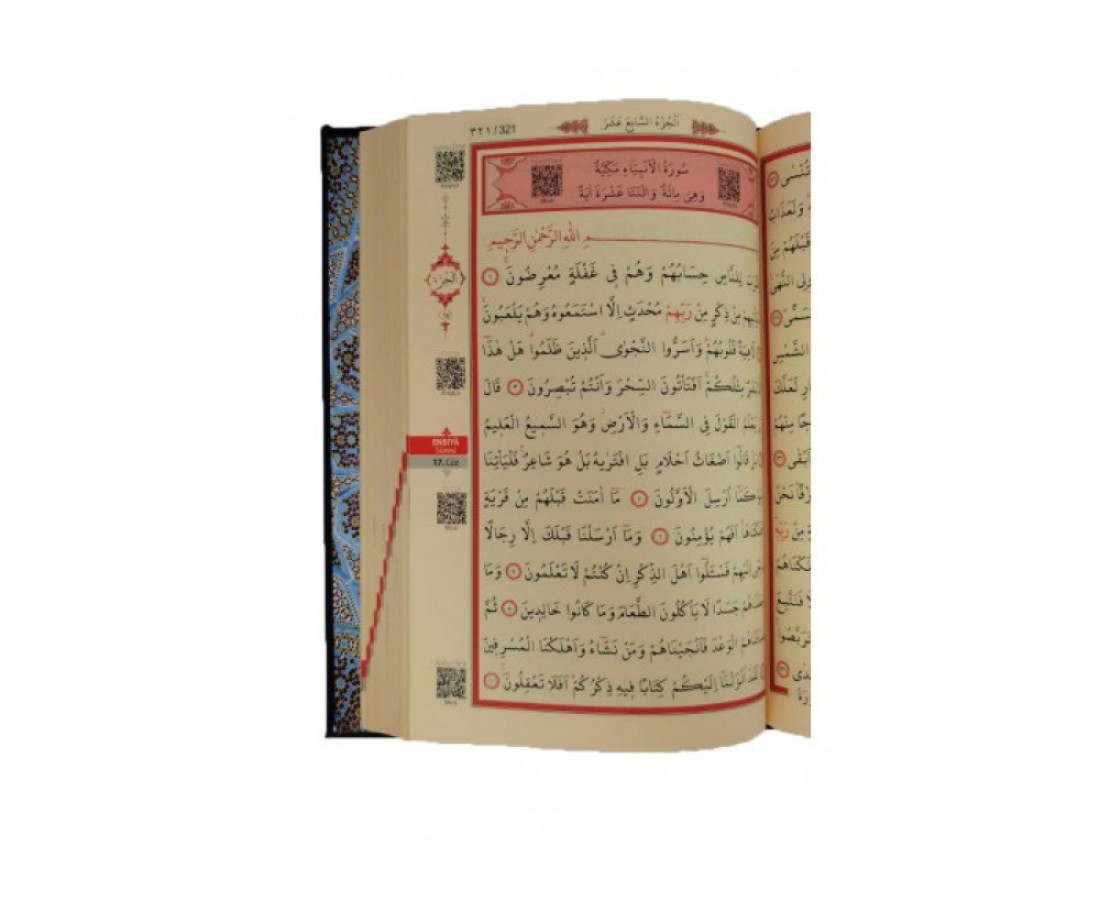 ٣٢١/321
اَلْجُزْءُ السَّابِعُ عَشَرَ
سُورَةُ الْاَنْبِيَاءِ مَكِّيَّةٌ
وَهِىَ مِائَةٌ وَاثْنَتَا عَشْرَةَ اٰيَةً
اللّٰهِ الرَّحْمٰنِ الرَّحِيمِ
لِلنَّاسِ حِسَابُهُمْ وَهُمْ فِى غَفْلَةٍ مُعْرِضُونَ ١
مِنْ ذِكْرٍ مِنْ رَبِّهِمْ مُحْدَثٍ اِلَّا اسْتَمَعُوهُ وَهُمْ يَلْعَبُونَ
قُلُوبُهُمْ وَاَسَرُّوا النَّجْوَى الَّذِينَ ظَلَمُوا هَلْ هٰذَا
مِثْلُكُمْ اَفَتَأْتُونَ السِّحْرَ وَاَنْتُمْ تُبْصِرُونَ ٣ قَالَ
يَعْلَمُ الْقَوْلَ فِى السَّمَاءِ وَالْاَرْضِ وَهُوَ السَّمِيعُ الْعَلِيمُ
قَالُوا اَضْغَاثُ اَحْلَامٍ بَلِ افْتَرٰيهُ بَلْ هُوَ شَاعِرٌ فَلْيَأْتِنَا
كَمَا اُرْسِلَ الْاَوَّلُونَ ٥ مَا اٰمَنَتْ قَبْلَهُمْ مِنْ قَرْيَةٍ
اَفَهُمْ يُؤْمِنُونَ ٦ وَمَا اَرْسَلْنَا قَبْلَكَ اِلَّا رِجَالًا
اِلَيْهِمْ فَسْـَٔلُوا اَهْلَ الذِّكْرِ اِنْ كُنْتُمْ لَا تَعْلَمُونَ ٧ وَمَا
جَسَدًا لَا يَأْكُلُونَ الطَّعَامَ وَمَا كَانُوا خَالِدِينَ ٨ ثُمَّ
الْوَعْدَ فَاَنْجَيْنَاهُمْ وَمَنْ نَشَاءُ وَاَهْلَكْنَا الْمُسْرِفِينَ
اَنْزَلْنَا اِلَيْكُمْ كِتَابًا فِيهِ ذِكْرُكُمْ اَفَلَا تَعْقِلُونَ ١٠
اَلْجُزْءُ
١٧
ENBİYÂ
Sûresi
17. Cüz
وَلَعَذَابُ
قَبْلَهُمْ مِنَ
الشَّمْسِ
لَعَلَّكَ
مِنْهُمْ